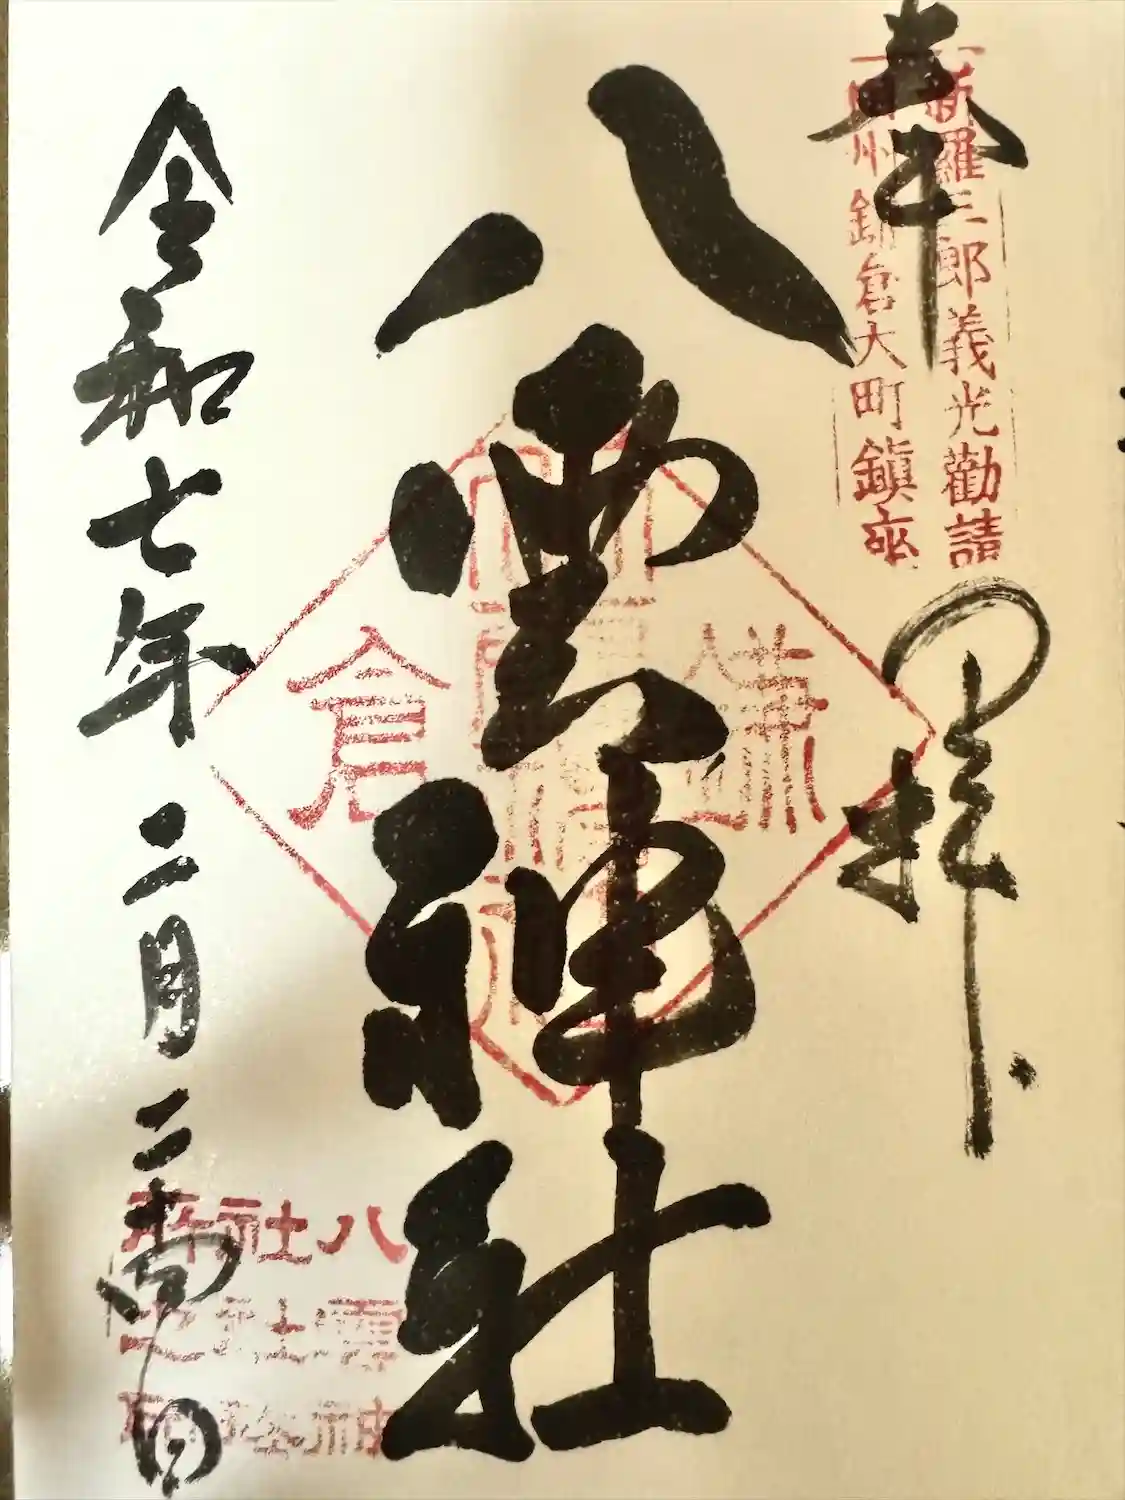 奉拝
新羅三郎義光勧請
相州鎌倉大町鎮座
八雲神社
鎌倉
令和七年二月二十四日